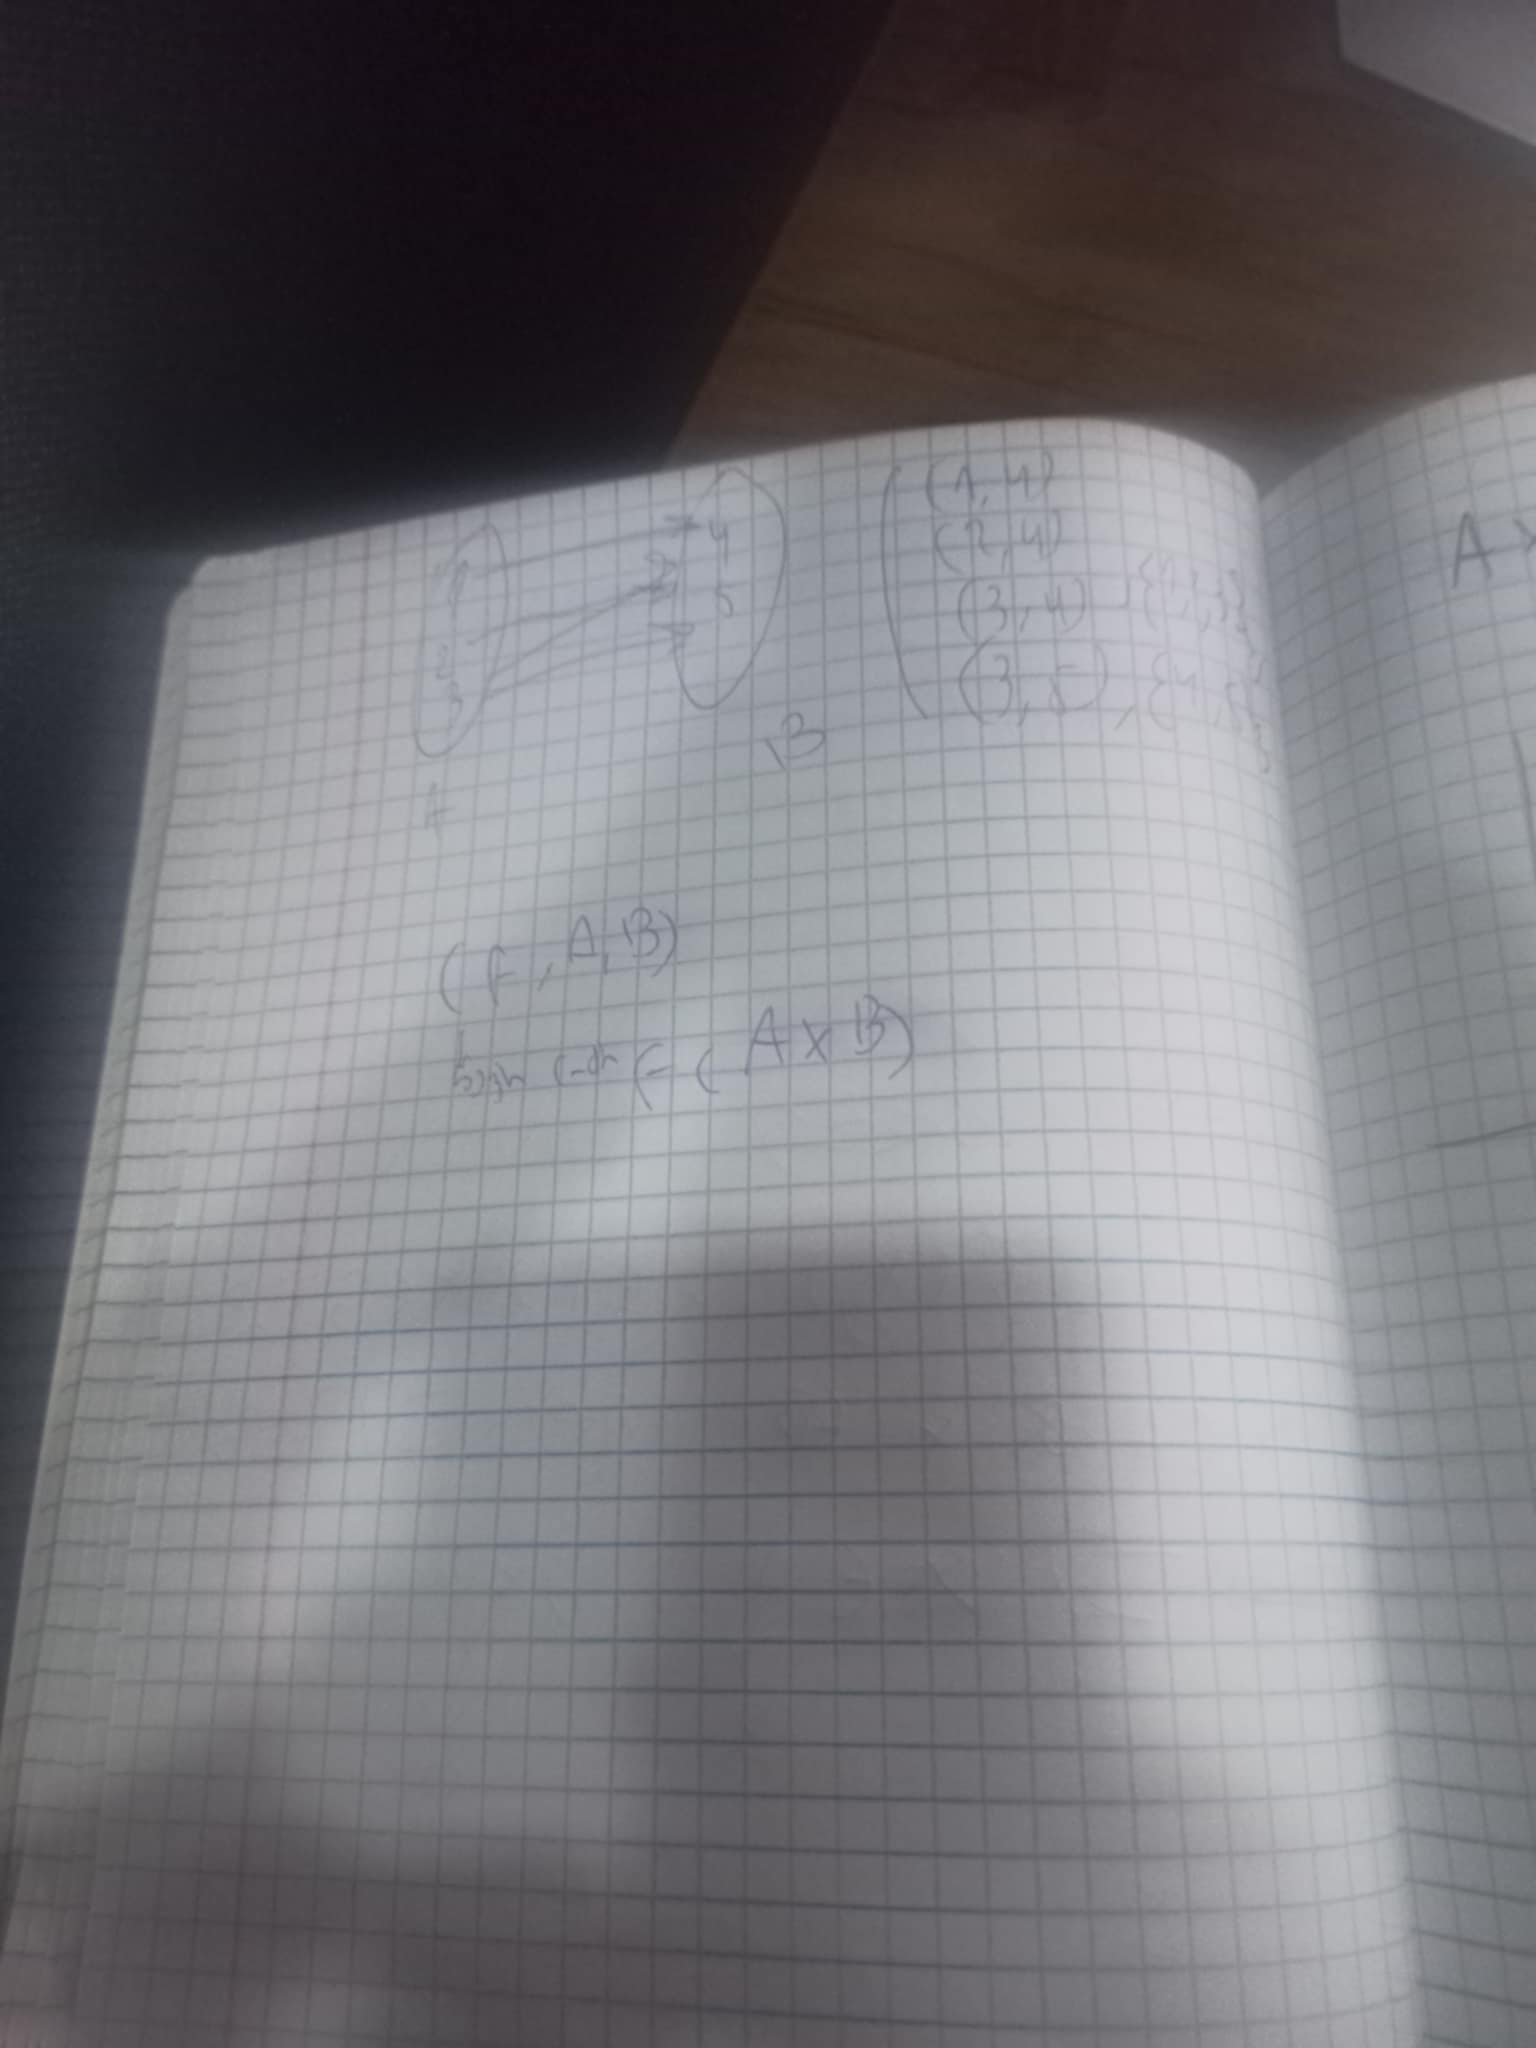 1
2
3
A
4
5
B
(1,4)
(2,4)
(3,4), {1,2,3},
(3,5), {4,5}
(F, A, B)
F ⊂ A × B)
A ×